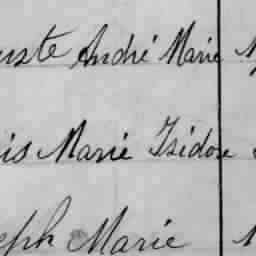 uste André Marie
is Marie Isidore
eph Marie